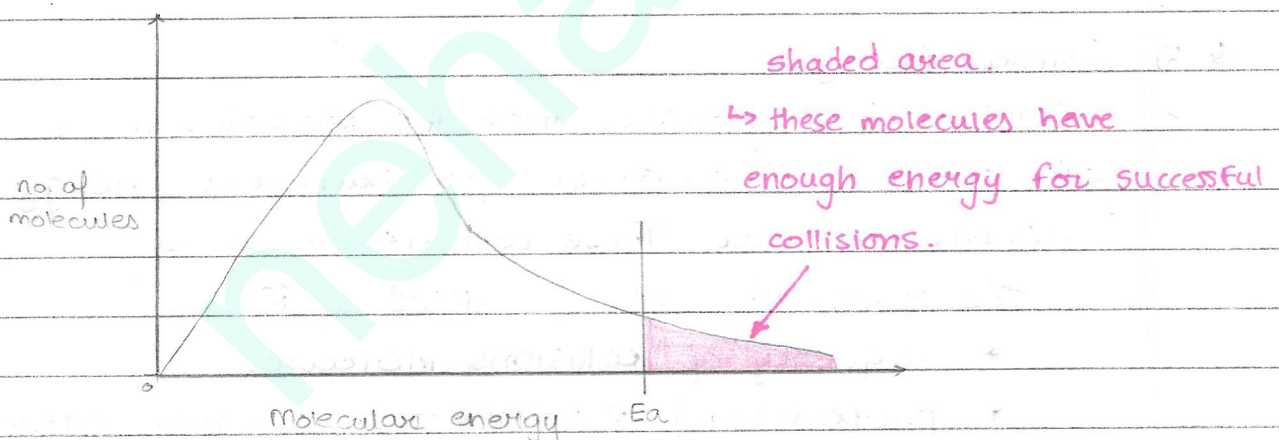 shaded area.
↳ these molecules have
enough energy for successful
collisions.
no. of
molecules
0
Molecular energy
Ea
neha